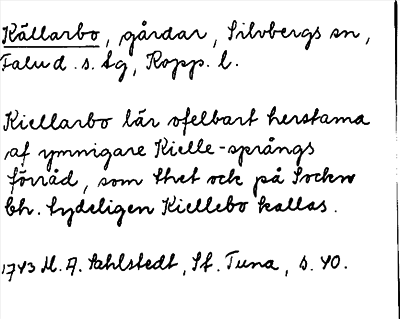 Källarbo, gårdar, Silvbergs sn,
Falu d. s. lg, Kopp. l.
Kiellarbo lär ofelbart herstama
af ymnigare Kielle-språngs
förråd, som thet ock på Sockn
bh. tydeligen Kiellebo kallas.
1743 M. A. Sahlstedt, St. Tuna, s. 40.